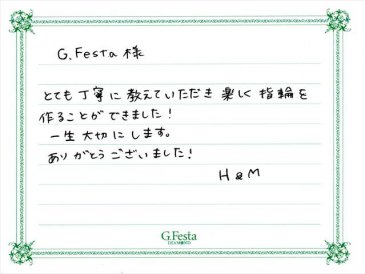 G.Festa 様
とても丁寧に教えていただき楽しく指輪を
作ることができました!
一生大切にします。
ありがとうございました!
H&M
G.Festa
DIAMOND